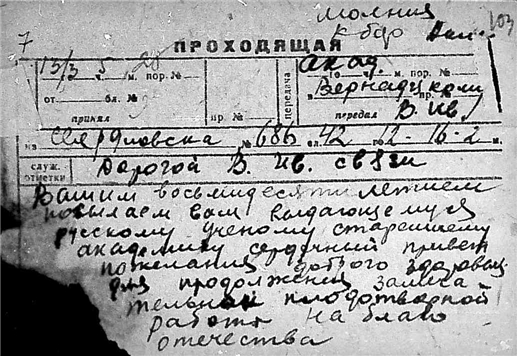 молния
103
7
ПРОХОДЯЩАЯ
13/3 5 м. пор. № акад
от бл. № пр. № передача в Вернадскому
принял передал В. Ив
из Свердловска № 686 сл. 42 12-16-2 м.
служ. отметки Дорогой В. Ив. связи
Вашим восьмидесятилетием
посылаем вам выдающемуся
русскому ученому старейшему
академику сердечный привет
пожелания доброго здоровья
для продолжения замеча
тельной плодотворной
работы на благо
отечества